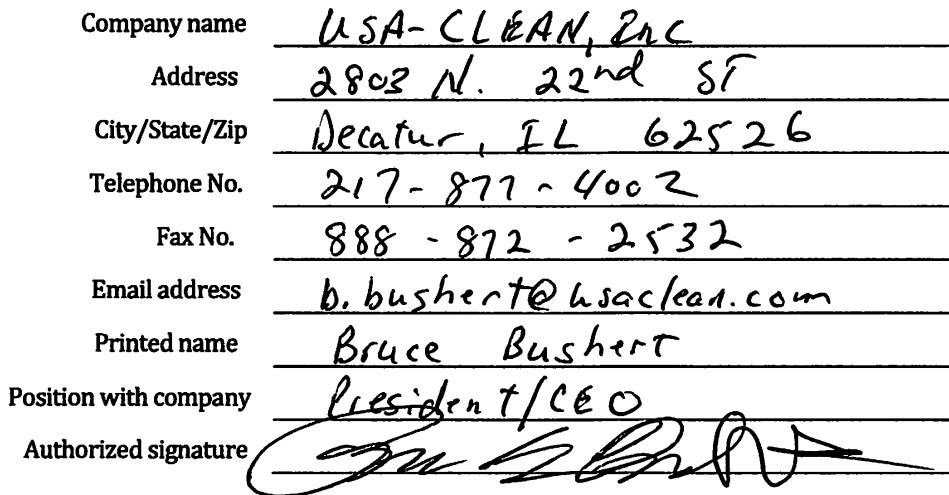 Company name USA-CLEAN, Inc
Address 2803 N. 22nd ST
City/State/Zip Decatur, IL 62526
Telephone No. 217-877-4002
Fax No. 888-872-2532
Email address b.bushert@usaclean.com
Printed name Bruce Bushert
Position with company President/CEO
Authorized signature